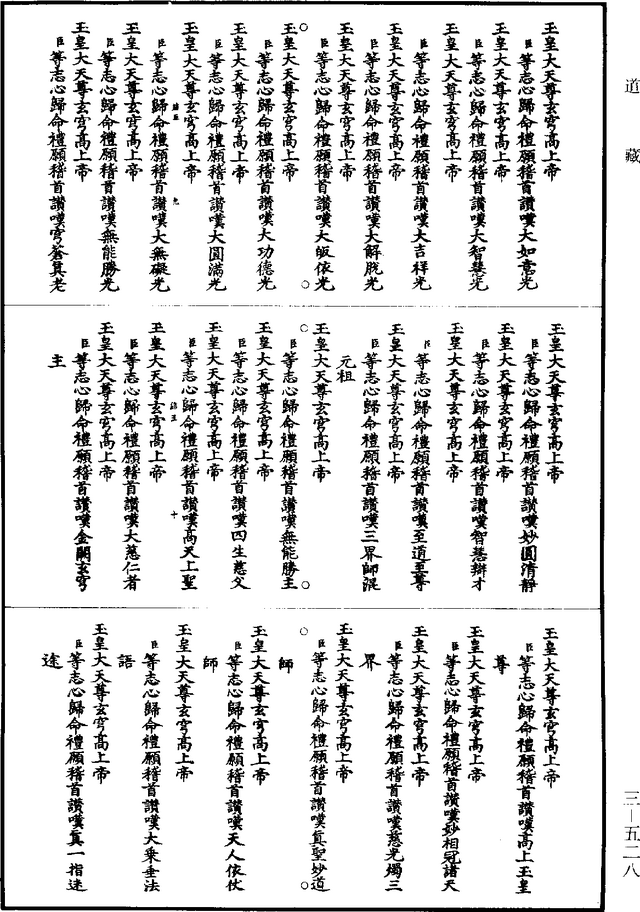 道藏
玉皇大天尊玄穹高上帝
臣等志心歸命禮願稽首讚嘆大如意光
玉皇大天尊玄穹高上帝
臣等志心歸命禮願稽首讚嘆大智慧光
玉皇大天尊玄穹高上帝
臣等志心歸命禮願稽首讚嘆大吉祥光
玉皇大天尊玄穹高上帝
臣等志心歸命禮願稽首讚嘆大解脫光
玉皇大天尊玄穹高上帝
臣等志心歸命禮願稽首讚嘆大皈依光
玉皇大天尊玄穹高上帝
臣等志心歸命禮願稽首讚嘆大功德光
玉皇大天尊玄穹高上帝
臣等志心歸命禮願稽首讚嘆大圓滿光
玉皇大天尊玄穹高上帝
臣等志心歸命禮願稽首讚嘆大無礙光
玉皇大天尊玄穹高上帝
臣等志心歸命禮願稽首讚嘆無能勝光
玉皇大天尊玄穹高上帝
臣等志心歸命禮願稽首讚嘆穹蒼真老
玉皇大天尊玄穹高上帝
臣等志心歸命禮願稽首讚嘆妙圓清靜
玉皇大天尊玄穹高上帝
臣等志心歸命禮願稽首讚嘆智慧辯才
玉皇大天尊玄穹高上帝
臣等志心歸命禮願稽首讚嘆至道至尊
玉皇大天尊玄穹高上帝
臣等志心歸命禮願稽首讚嘆三界師混
元祖
玉皇大天尊玄穹高上帝
臣等志心歸命禮願稽首讚嘆無能勝主
玉皇大天尊玄穹高上帝
臣等志心歸命禮願稽首讚嘆四生慈父
玉皇大天尊玄穹高上帝
臣等志心歸命禮願稽首讚嘆高天上聖
玉皇大天尊玄穹高上帝
臣等志心歸命禮願稽首讚嘆大慈仁者
玉皇大天尊玄穹高上帝
臣等志心歸命禮願稽首讚嘆金闕玄穹
主
玉皇大天尊玄穹高上帝
臣等志心歸命禮願稽首讚嘆高上玉皇
尊
玉皇大天尊玄穹高上帝
臣等志心歸命禮願稽首讚嘆妙相冠諸天
玉皇大天尊玄穹高上帝
臣等志心歸命禮願稽首讚嘆慈光燭三
界
玉皇大天尊玄穹高上帝
臣等志心歸命禮願稽首讚嘆真聖妙道
師
玉皇大天尊玄穹高上帝
臣等志心歸命禮願稽首讚嘆天人依仗
師
玉皇大天尊玄穹高上帝
臣等志心歸命禮願稽首讚嘆大乘垂法
語
玉皇大天尊玄穹高上帝
臣等志心歸命禮願稽首讚嘆真一指迷
途
三—五二八